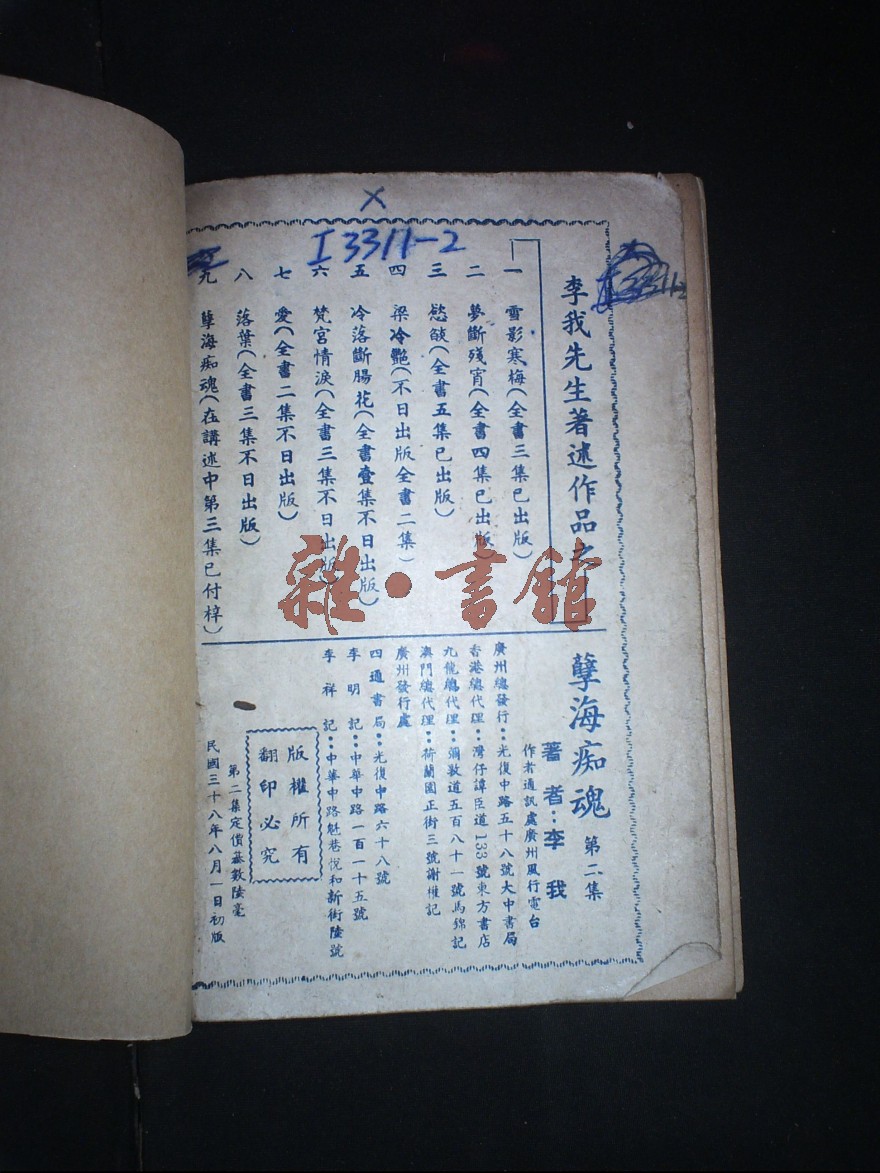 I3311-2
I3311-2
李我先生著述作品之
一 雪影寒梅(全書三集已出版)
二 夢斷殘宵(全書四集已出版)
三 慾燄(全書五集已出版)
四 梁冷艷(不日出版全書二集)
五 冷落斷腸花(全書壹集不日出版)
六 梵宮情淚(全書三集不日出版)
七 愛(全書二集不日出版)
八 落葉(全書三集不日出版)
九 孽海痴魂(在講述中第三集已付梓)
孽海痴魂 第二集
著者:李我
作者通訊處廣州風行電台
廣州總發行:光復中路五十八號大中書局
香港總代理:灣仔譚臣道133號東方書店
九龍總代理:彌敦道五百八十一號馬錦記
澳門總代理:荷蘭園正街三號謝權記
廣州發行處
四通書局:光復中路六十八號
李明記:中華中路一百一十五號
李祥記:中華中路魁巷悅和新街陸號
版權所有
翻印必究
第二集定價基數陸毫
民國三十八年八月一日初版
雜·書館